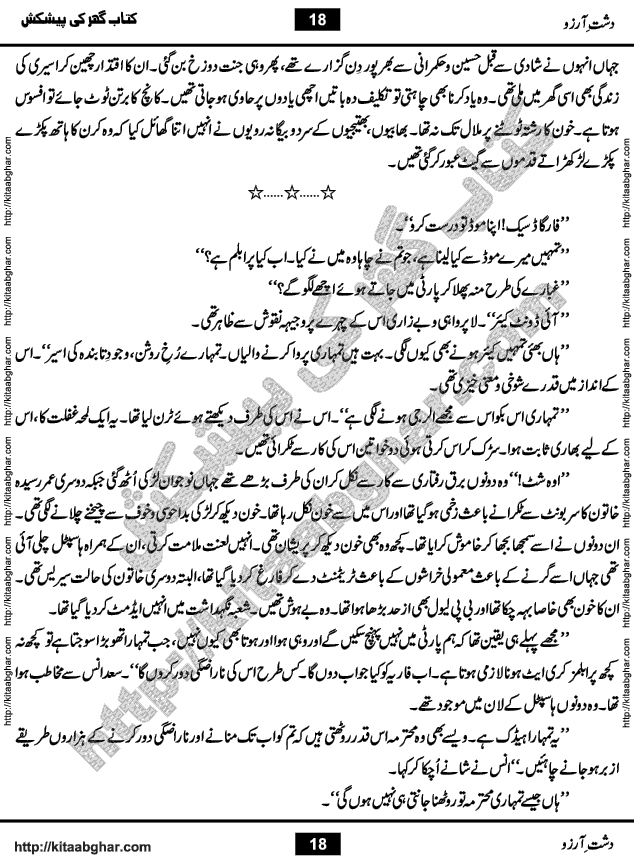 کتاب گھر کی پیشکش 18 دشتِ آرزو
جہاں انہوں نے شادی سے قبل حسین و حکمرانی سے بھرپور دِن گزارے تھے، پھر وہی جنت دوزخ بن گئی۔ ان کا اقتدار چھین کر اسیری کی
زندگی بھی اسی گھر میں ملی تھی۔ وہ یاد کرنا بھی چاہتی تو تکلیف دہ باتیں اچھی یادوں پر حاوی ہو جاتی تھیں۔ کانچ کا برتن ٹوٹ جائے تو افسوس
ہوتا ہے۔ خون کا رشتہ ٹوٹنے پر ملال تک نہ تھا۔ بھابیوں، بھتیجیوں کے سرد و بیگانہ رویوں نے انہیں اتنا گھائل کیا کہ وہ کرن کا ہاتھ پکڑے
پکڑے لڑکھڑاتے قدموں سے گیٹ عبور کر گئی تھیں۔
☆......☆......☆
’’فار گاڈ سیک! اپنا موڈ تو درست کرو‘‘۔
’’تمہیں میرے موڈ سے کیا لینا ہے، جو تم نے چاہا وہ میں نے کیا۔ اب کیا پرابلم ہے؟‘‘
’’غبارے کی طرح منہ پھلا کر پارٹی میں جاتے ہوئے اچھے لگو گے؟‘‘
’’آئی ڈونٹ کیئر‘‘۔ لاپرواہی و بے زاری اس کے چہرے پر وجیہہ نقوش سے ظاہر تھی۔
’’ہاں بھئی تمہیں کیئر ہونے بھی کیوں لگی۔ بہت ہیں تمہاری پروا کرنے والیاں۔ تمہارے رُخِ روشن، وجودِ تابندہ کی اسیر‘‘۔ اس
کے انداز میں قدرے شوخی و معنی خیزی تھی۔
’’تمہاری اس بکواس سے مجھے الرجی ہونے لگی ہے‘‘۔ اس نے اس کی طرف دیکھتے ہوئے ٹرن لیا تھا۔ یہ ایک لمحہ غفلت کا، اس
کے لیے بھاری ثابت ہوا۔ سڑک کراس کرتی ہوئی دو خواتین اس کی کار سے ٹکرائی تھیں۔
’’اوہ شٹ!‘‘ وہ دونوں برق رفتاری سے کار سے نکل کر ان کی طرف بڑھے تھے جہاں نوجوان لڑکی اُٹھ گئی جبکہ دوسری عمر رسیدہ
خاتون کا سر بونٹ سے ٹکرانے باعث زخمی ہو گیا تھا اور اس میں سے خون نکل رہا تھا۔ خون دیکھ کر لڑکی بدحواسی و خوف سے چیخنے چلانے لگی تھی۔
ان دونوں نے اسے سمجھا بجھا کر خاموش کرایا تھا۔ کچھ وہ بھی خون دیکھ کر پریشان تھی۔ انہیں لعنت ملامت کرتی، ان کے ہمراہ ہاسپٹل چلی آئی
تھی جہاں اسے گرنے کے باعث معمولی خراشوں کے باعث ٹریٹمنٹ دے کر فارغ کر دیا گیا تھا، البتہ دوسری خاتون کی حالت سیریس تھی۔
ان کا خون بھی خاصا بہہ چکا تھا اور بی پی لیول بھی ازحد بڑھا ہوا تھا۔ وہ بے ہوش تھیں۔ شعبہ نگہداشت میں انہیں ایڈمٹ کر دیا گیا تھا۔
’’مجھے پہلے ہی یقین تھا کہ ہم پارٹی میں نہیں پہنچ سکیں گے اور وہی ہوا اور ہوتا بھی کیوں نہیں، جب تمہارا تھوبڑا سوجتا ہے تو کچھ نہ
کچھ پرابلمز کری ایٹ ہونا لازمی ہوتا ہے۔ اب فاریہ کو کیا جواب دوں گا۔ کس طرح اس کی ناراضگی دور کروں گا‘‘۔ سعد انس سے مخاطب ہوا
تھا۔ وہ دونوں ہاسپٹل کے لان میں موجود تھے۔
’’یہ تمہارا ہیڈک ہے۔ ویسے بھی وہ محترمہ اس قدر روٹھتی ہیں کہ تم کو اب تک منانے اور ناراضگی دور کرنے کے ہزاروں طریقے
ازبر ہو جانے چاہئیں‘‘۔ انس نے شانے اُچکا کر کہا۔
’’ہاں جیسے تمہاری محترمہ تو روٹھنا جانتی ہی نہیں ہوں گی‘‘۔
http://kitaabghar.com 18 دشتِ آرزو
http://kitaabghar.com
http://kitaabghar.com
http://kitaabghar.com
http://kitaabghar.com
http://kitaabghar.com
http://kitaabghar.com
http://kitaabghar.com
http://kitaabghar.com
http://kitaabghar.com
http://kitaabghar.com
http://kitaabghar.com
http://kitaabghar.com
کتاب گھر کی پیشکش
http://kitaabghar.com